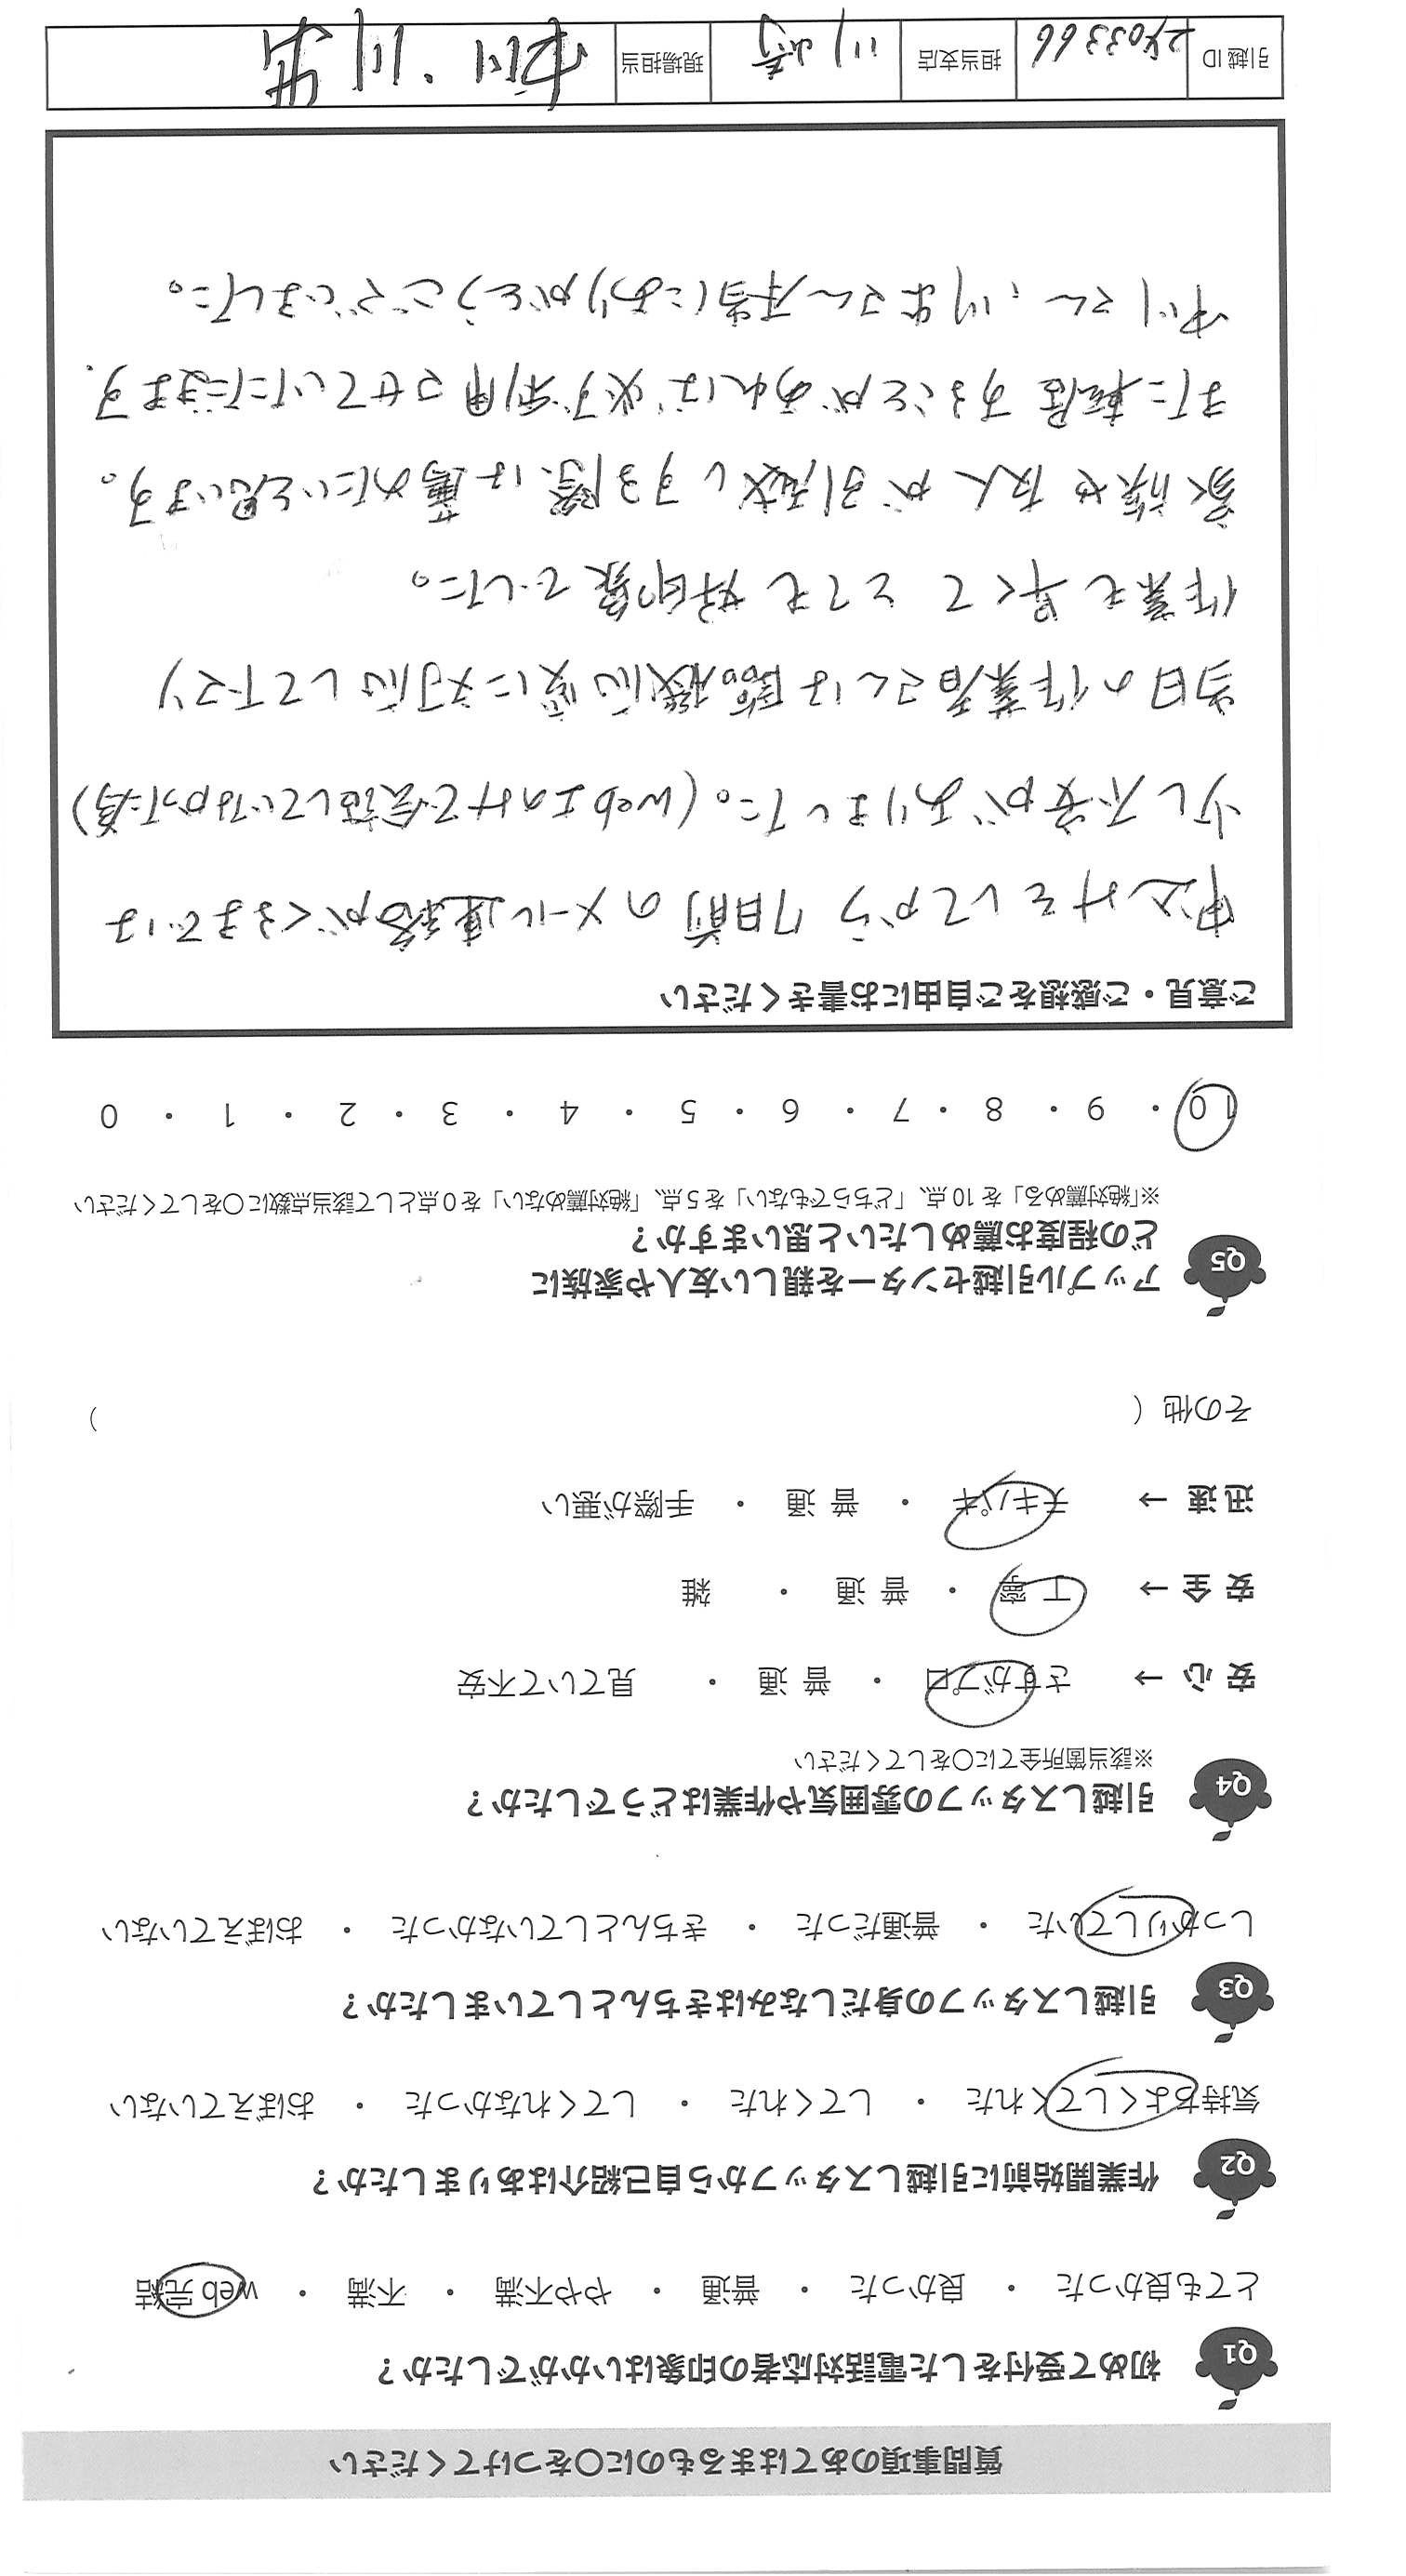 質問事項のあてはまるものに○をつけてください
Q1 初めて受付をした電話対応者の印象はいかがでしたか？
とても良かった ・ 良かった ・ 普通 ・ やや不満 ・ 不満 ・ web 完結
Q2 作業開始前に引越しスタッフから自己紹介はありましたか？
気持ちよくしてくれた ・ してくれた ・ してくれなかった ・ おぼえていない
Q3 引越しスタッフの身だしなみはきちんとしていましたか？
しっかりしていた ・ 普通だった ・ きちんとしていなかった ・ おぼえていない
Q4 引越しスタッフの雰囲気や作業はどうでしたか？
※該当箇所全てに○をしてください
安心 → さすがプロ ・ 普通 ・ 見ていて不安
安全 → 丁寧 ・ 普通 ・ 雑
迅速 → テキパキ ・ 普通 ・ 手際が悪い
その他（ ）
Q5 アップル引越センターを親しい友人や家族に
どの程度お薦めしたいと思いますか？
※「絶対薦める」を10点、「どちらでもない」を5点、「絶対薦めない」を0点として該当点数に○をしてください
10 ・ 9 ・ 8 ・ 7 ・ 6 ・ 5 ・ 4 ・ 3 ・ 2 ・ 1 ・ 0
ご意見・ご感想をご自由にお書きください
申込けをしてから7日前のメール連絡がくるまでは
少し不安がありました。(web上のみで会話していなかった為)
当日の作業者さんは臨機応変に対応して下さり
作業も早くてとても好印象でした。
家族や友人が引越しする際は薦めたいと思います。
また転居することがあれば必ず利用させていただきます.
中川さん、川井さん本当にありがとうございました。
引越ID 2403366 担当支店 川崎 現場担当 中川・川井